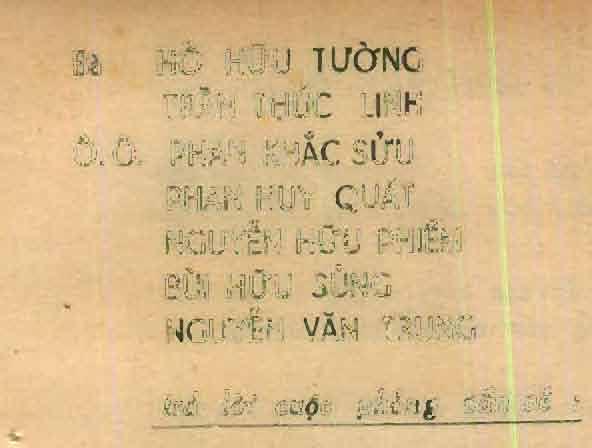 Bà HỒ HỮU TƯỜNG
TRẦN THÚC LINH
Ô. Ô. PHAN KHẮC SỬU
PHAN HUY QUÁT
NGUYỄN HỮU PHIẾM
BÙI HỮU SỦNG
NGUYỄN VĂN TRUNG
trả lời cuộc phỏng vấn về :